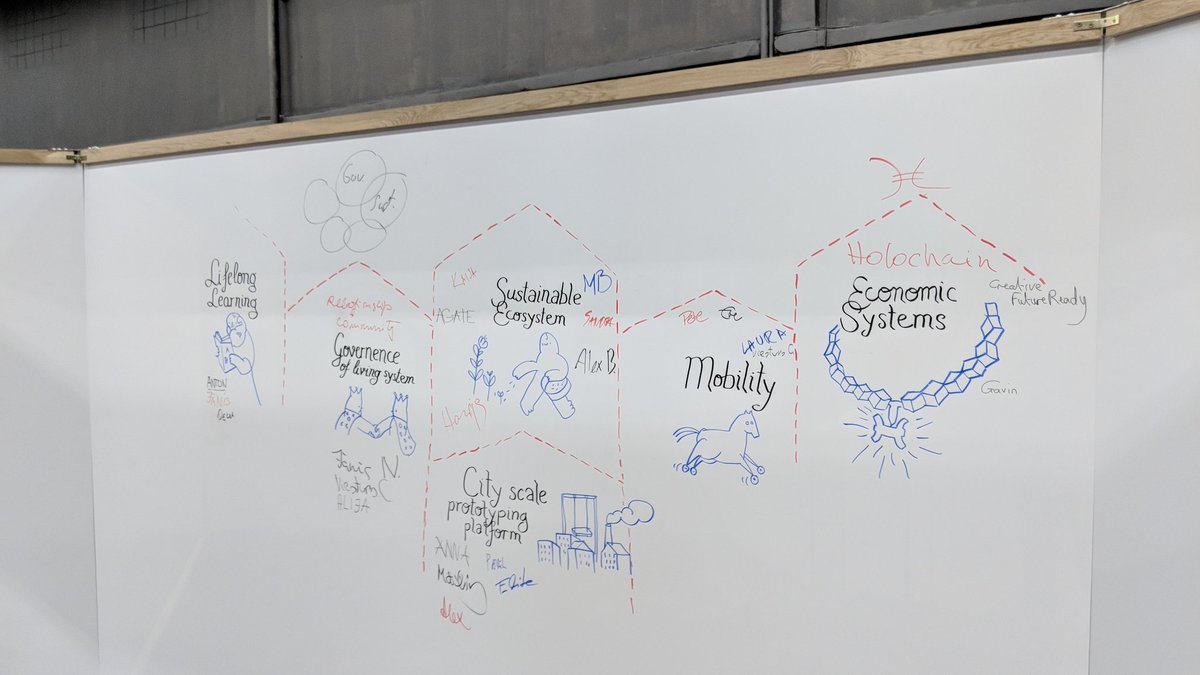 Gov.
Sust.
Lifelong
Learning
ANTON
JANIS
Relationship
+
community
Governence
of living system
Janis N.
Viesturs C
ALISA
AGATE
Sustainable
Ecosystem
MB
Alex B
City scale
prototyping
platform
ANNA
Alex
LAURA
Viesturs C
Mobility
Holochain
Economic
Systems
Creative
FutureReady
Gavin